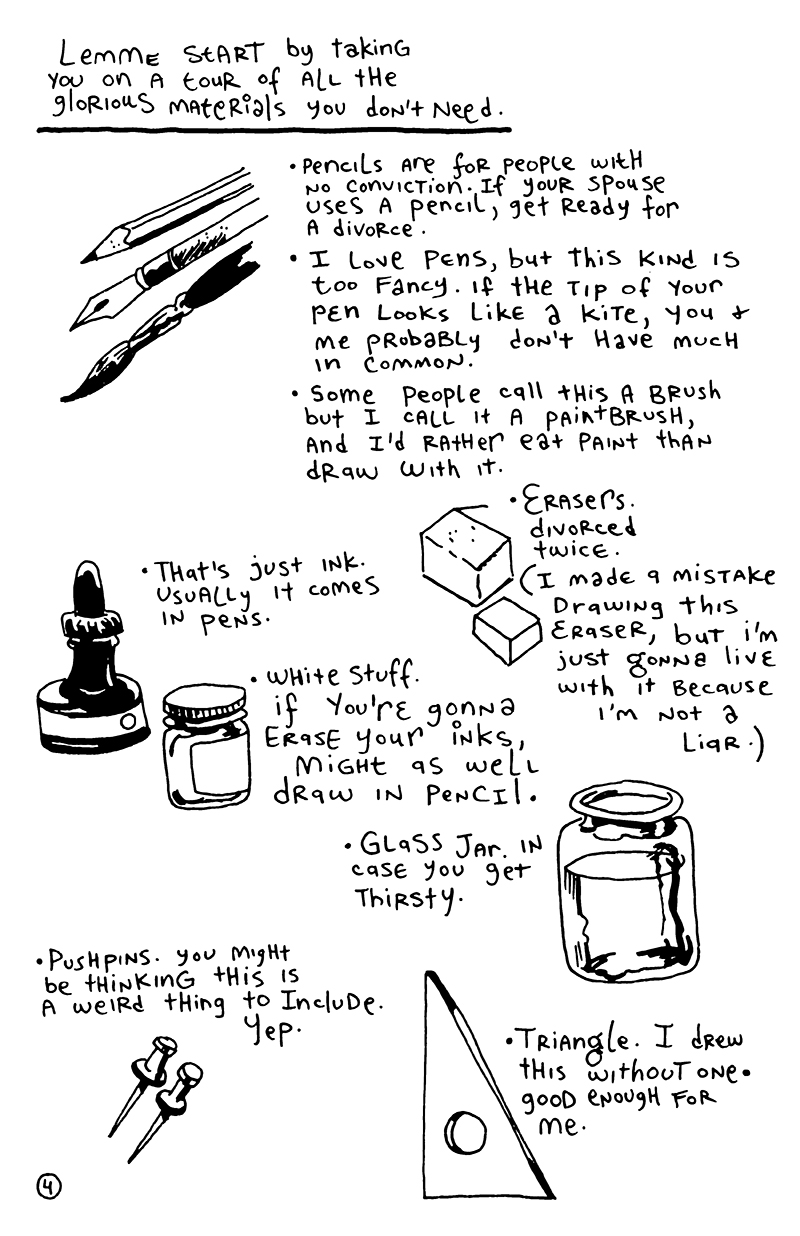 Lemme start by taking
you on a tour of all the
glorious materials you don't need.
• Pencils are for people with
no conviction. If your spouse
uses a pencil, get ready for
a divorce.
• I love pens, but this kind is
too fancy. If the tip of your
pen looks like a kite, you &
me probably don't have much
in common.
• Some people call this a brush
but I call it a paintbrush,
and I'd rather eat paint than
draw with it.
• Erasers.
divorced
twice.
(I made a mistake
drawing this
eraser, but i'm
just gonna live
with it because
I'm not a
liar.)
• That's just ink.
usually it comes
in pens.
• White stuff.
if you're gonna
erase your inks,
might as well
draw in pencil.
• Glass jar. in
case you get
thirsty.
• Pushpins. you might
be thinking this is
a weird thing to include.
Yep.
• Triangle. I drew
this without one.
good enough for
me.
4